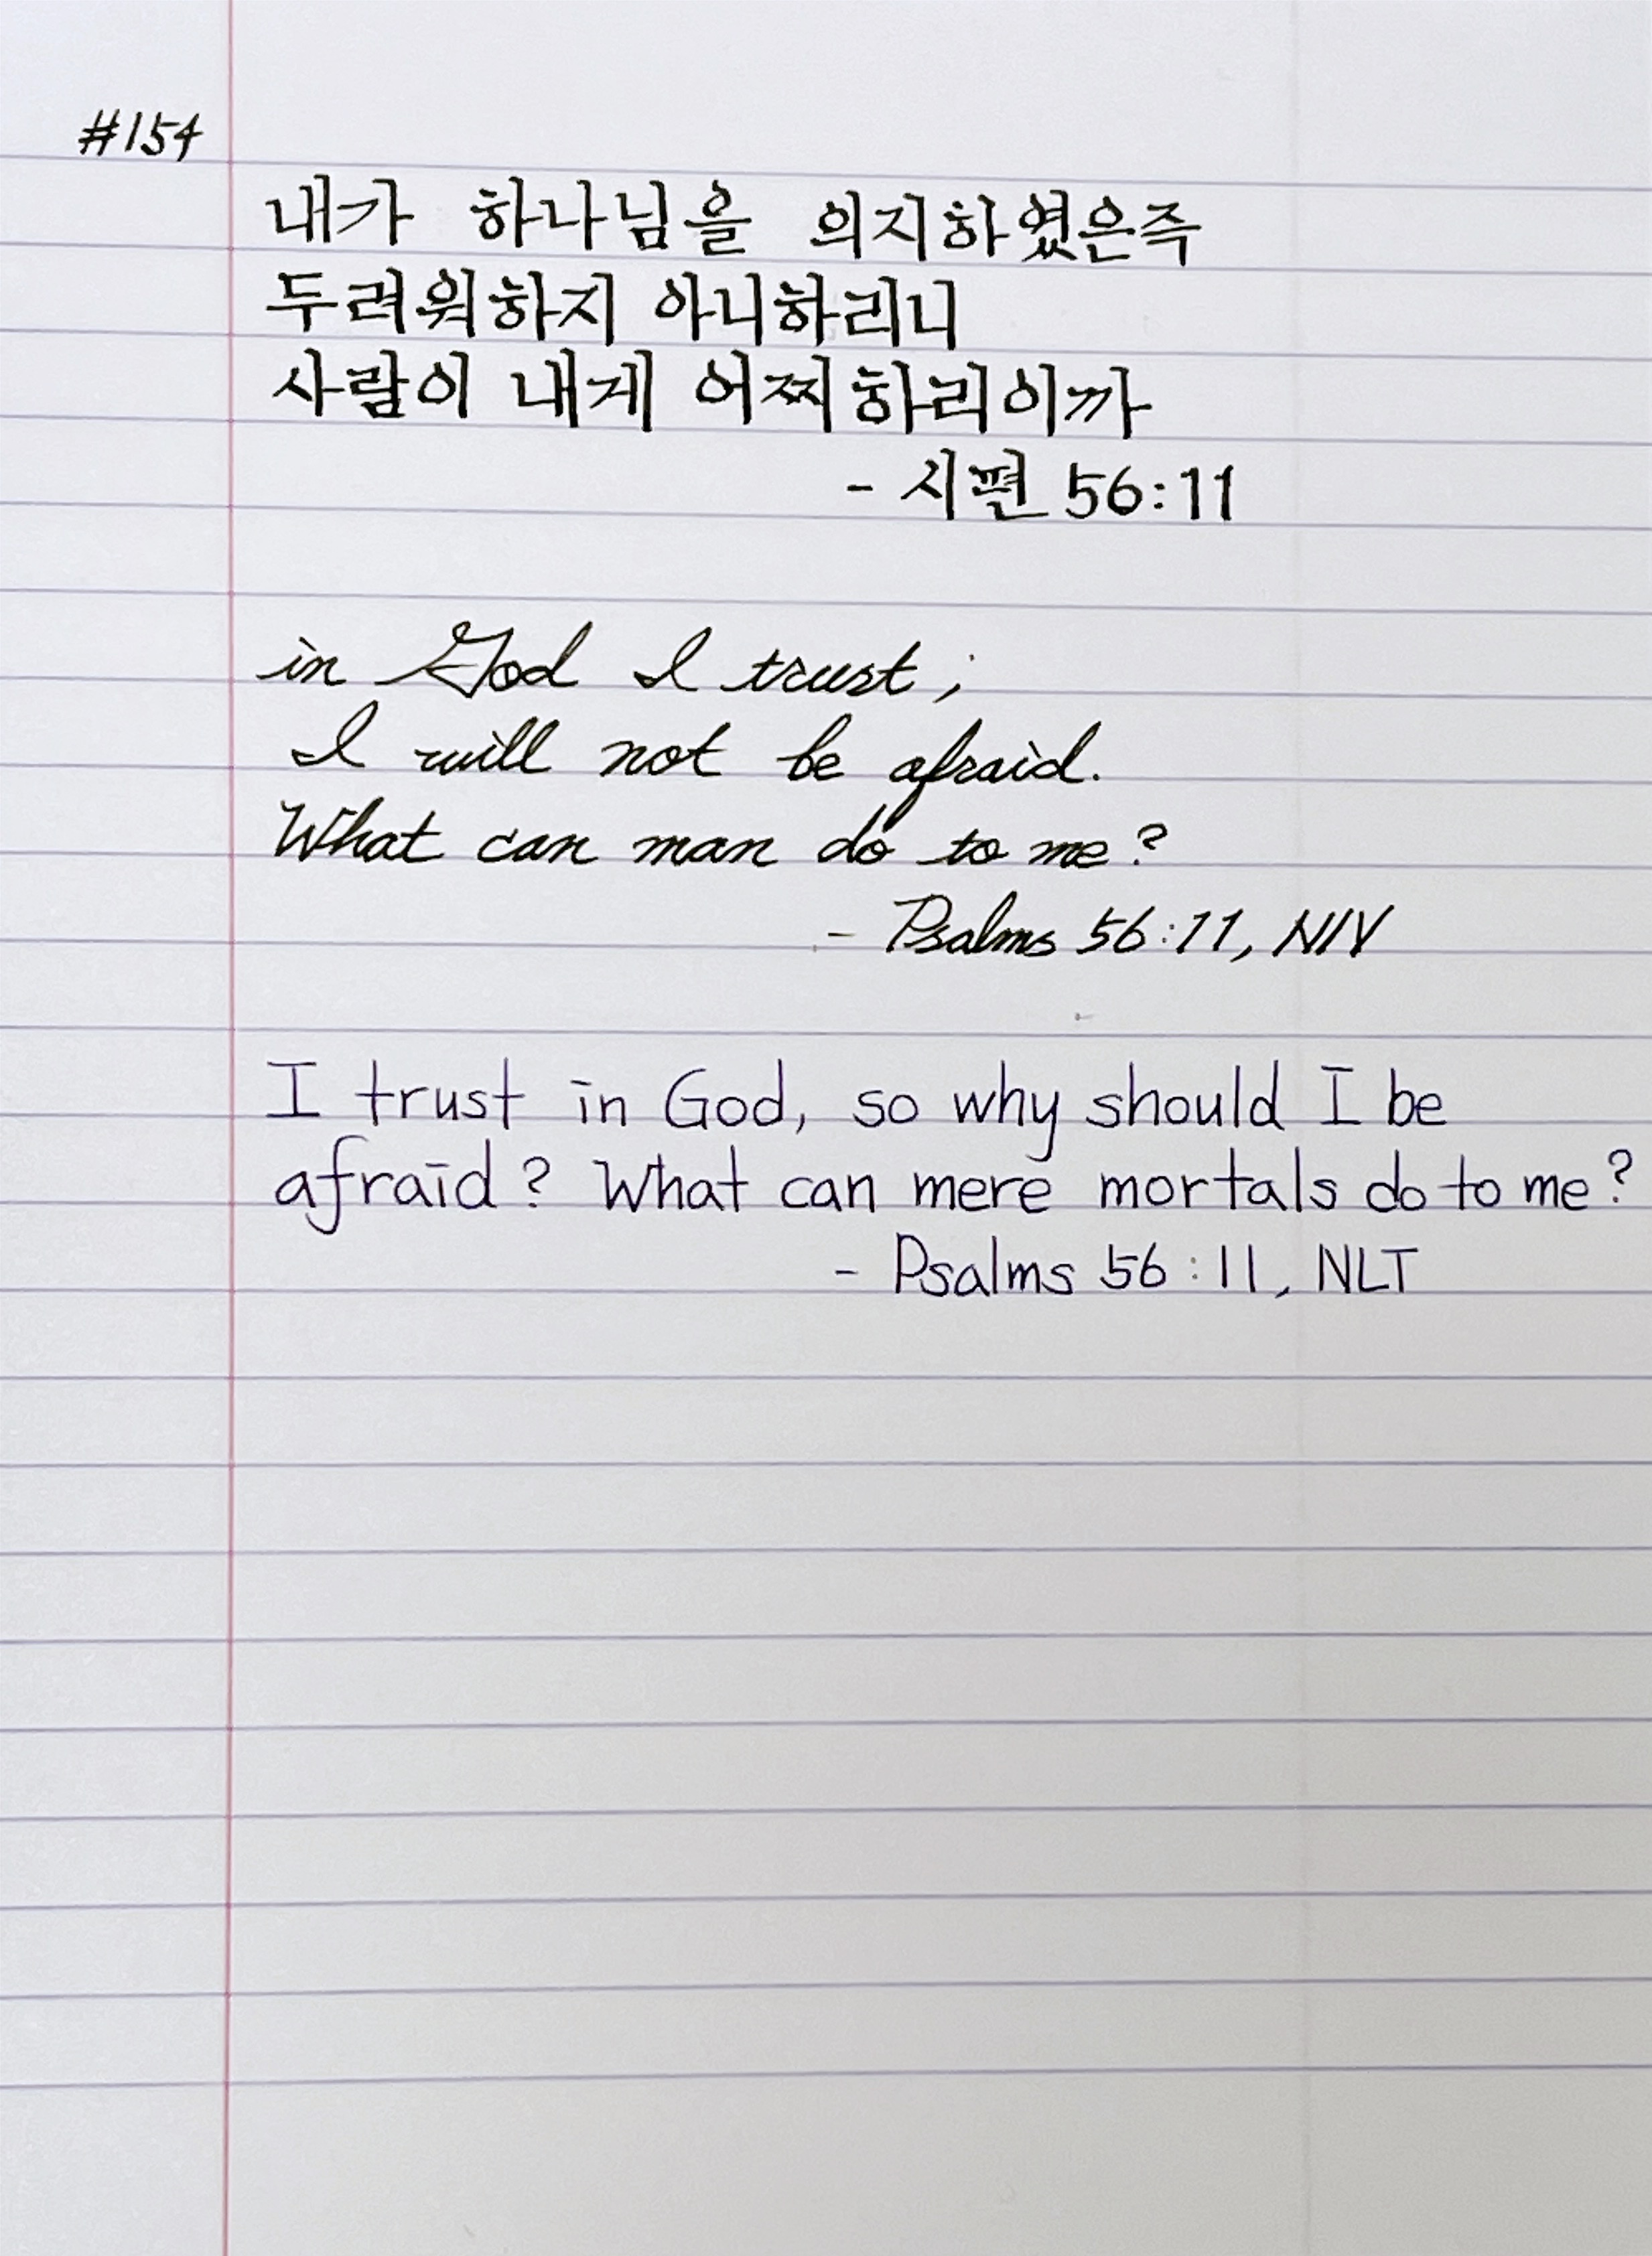 #154
내가 하나님을 의지하였은즉
두려워하지 아니하리니
사람이 내게 어찌하리이까
- 시편 56:11
in God I trust;
I will not be afraid.
What can man do to me?
- Psalms 56:11, NIV
I trust in God, so why should I be
afraid? What can mere mortals do to me?
- Psalms 56:11, NLT